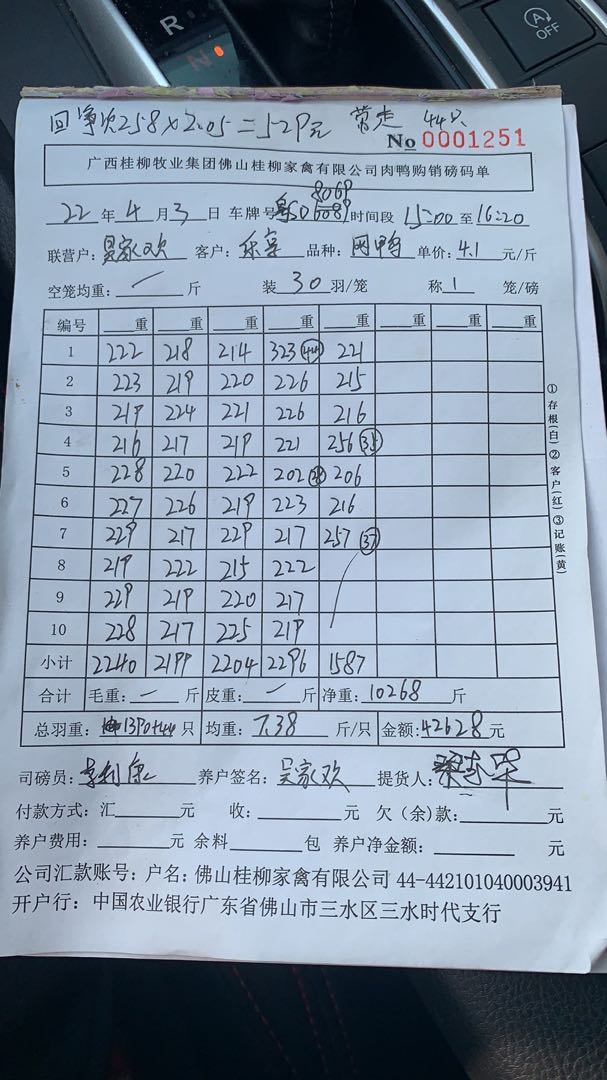 P
R
N
A
OFF
258×2.05=529元 44只
No 0001251
广西桂柳牧业集团佛山桂柳家禽有限公司肉鸭购销磅码单
22年4月3日 车牌号 时间段 15:00至16:20
联营户:吴家欢 客户:乐喜 品种: 单价:4.1元/斤
空笼均重:一斤 装30羽/笼 称1笼/磅
编号 重 重 重 重 重 重 重 重
1 222 218 214 323 44 221
2 223 219 220 226 215
3 219 224 221 226 216
4 216 217 219 221 256 35
5 228 220 222 202 28 206
6 227 226 219 223 216
7 229 217 229 217 257 37
8 219 222 215 222
9 229 219 220 217
10 228 217 225 219
小计 2240 2199 2204 2296 1587
合计 毛重:一斤 皮重:一斤 净重:10268斤
总羽重:1390+44只 均重:7.38斤/只 金额:42628元
司磅员:李利康 养户签名:吴家欢 提货人:
付款方式:汇 元 收: 元 欠(余)款: 元
养户费用: 元 余料 包 养户净金额: 元
公司汇款账号:户名:佛山桂柳家禽有限公司 44-442101040003941
开户行:中国农业银行广东省佛山市三水区三水时代支行
①存根(白)②客户(红)③记账(黄)